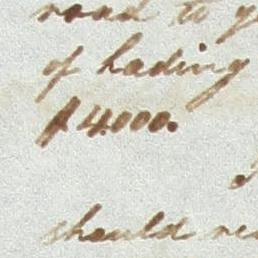 road to
of lading
$4000.
should